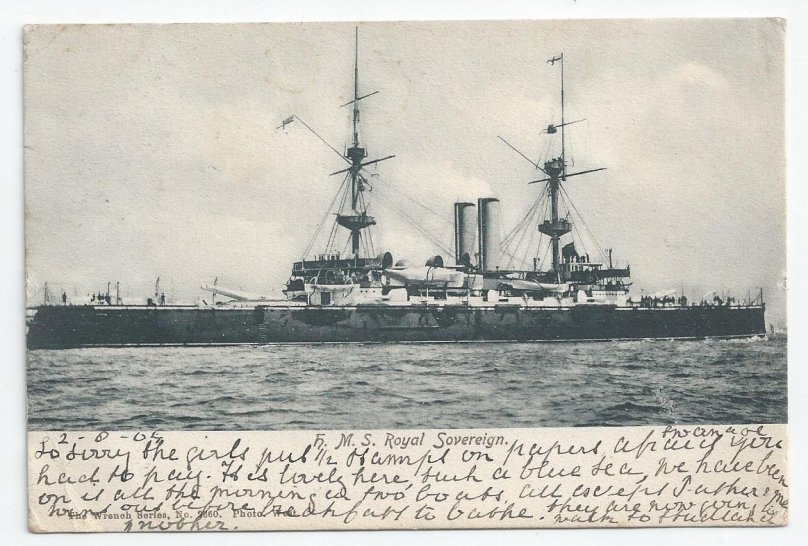 H. M. S. Royal Sovereign.
Swanage
2-8-05
So sorry the girls put 1/2 stamps on papers, afraid you
had to pay. It is lovely here, such a blue sea, we have been
on it all the morning in two boats, all except Father & me
out before breakfast to bathe. They are now going to
The Wrench Series, No. 2360. Photo. West.
another. walk to Studland